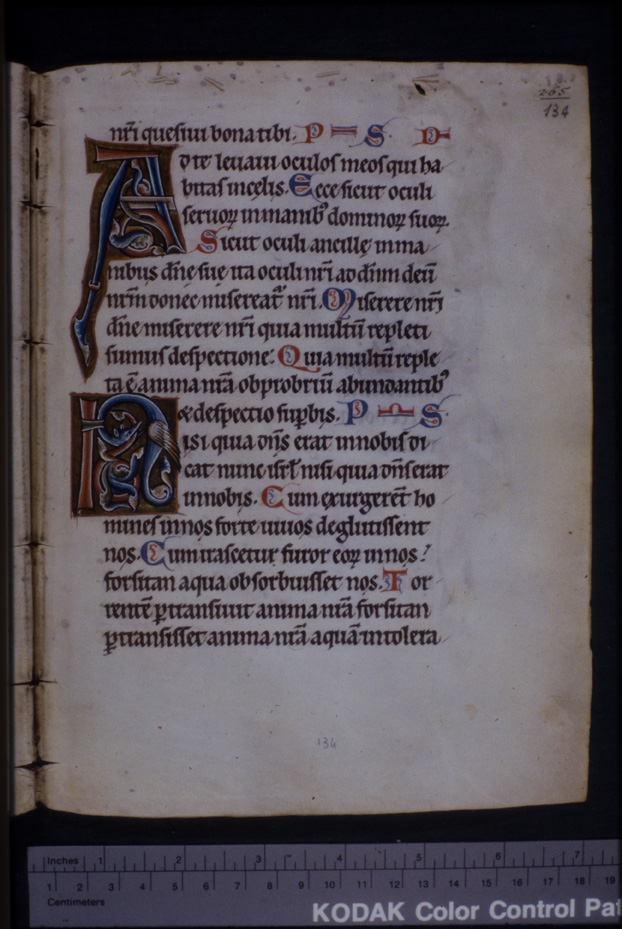 265
134
nr̄i quesiui bona tibi. P S D
Ad te leuaui oculos meos qui ha
bitas in cęlis. Ecce sicut oculi
seruoꝝ in manibꝰ dominoꝝ suoꝝ.
Sicut oculi ancillę in ma
nibus dn̄e sue ita oculi nr̄i ad dn̄m deū
nr̄m donec misereat᷑ nr̄i. Miserere nr̄i
dn̄e miserere nr̄i quia multū repleti
sumus despectione. Quia multū reple
ta ē anima nr̄a obprobriū abundantibꝰ
& despectio suꝑbis. P S
Nisi quia dn̄s erat in nobis di
cat nunc isrł nisi quia dn̄s erat
in nobis. Cum exurgerēt ho
mines in nos forte uiuos deglutissent
nos. Cum irascetur furor eoꝝ in nos
forsitan aqua obsorbuisset nos. Tor
rentē ꝑtransiuit anima nr̄a forsitan
ꝑtransisset anima nr̄a aquā intolera
134
Inches 1 2 3 4 5 6 7
1 2 3 4 5 6 7 8 9 10 11 12 13 14 15 16 17 18 19
Centimeters
KODAK Color Control Pat